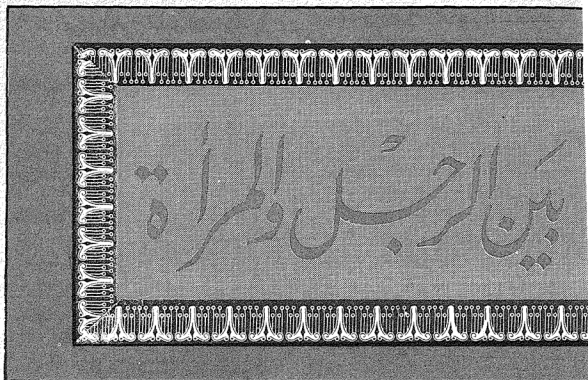 بَين الرجْل والمرأة